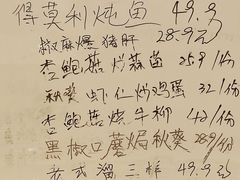 得莫利炖鱼 49.9
椒麻爆猪肝 28.9元
杏鲍菇烂蒜茵 25.9/份
秋葵虾仁炒鸡蛋 32/份
杏鲍菇炫牛柳 42/份
黑椒口蘑焗秋葵 28.9/份
老式溜三样 49.9元